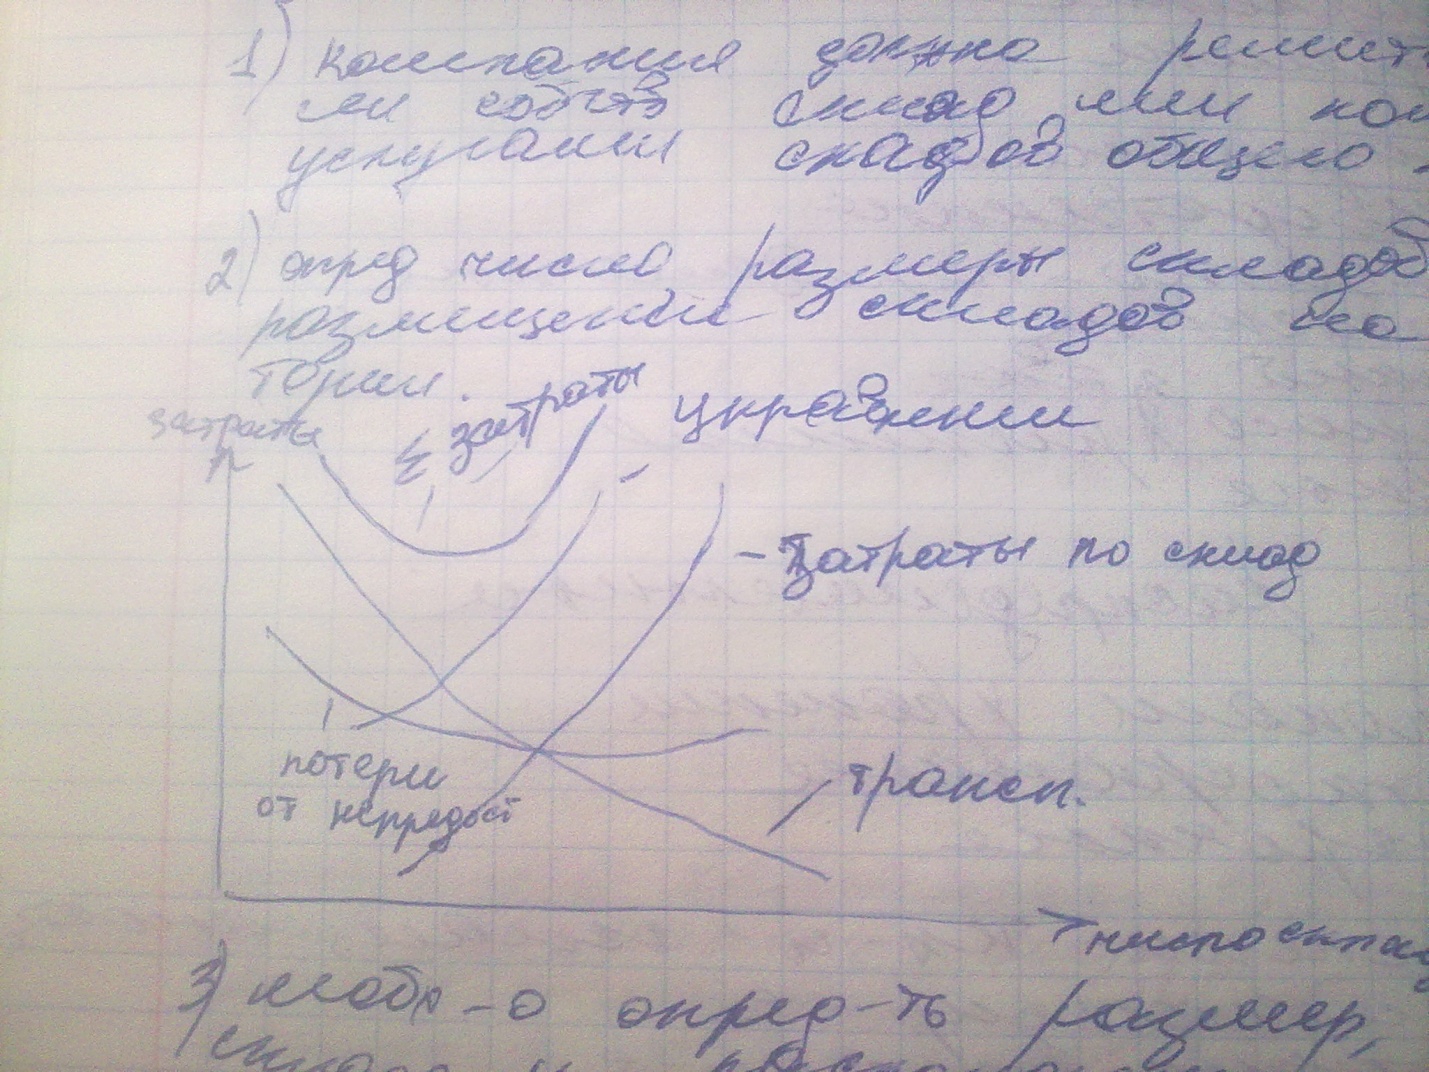 1) компания должна решить
ли собств склад или
услугами складов общего
2) опред число размеры складов
размещение складов на
тории.
затраты
Σ затраты
управлении
- затраты по склад
потери
от непредост
трансп.
число склад
3) необх-о опред-ть размер,
склада и